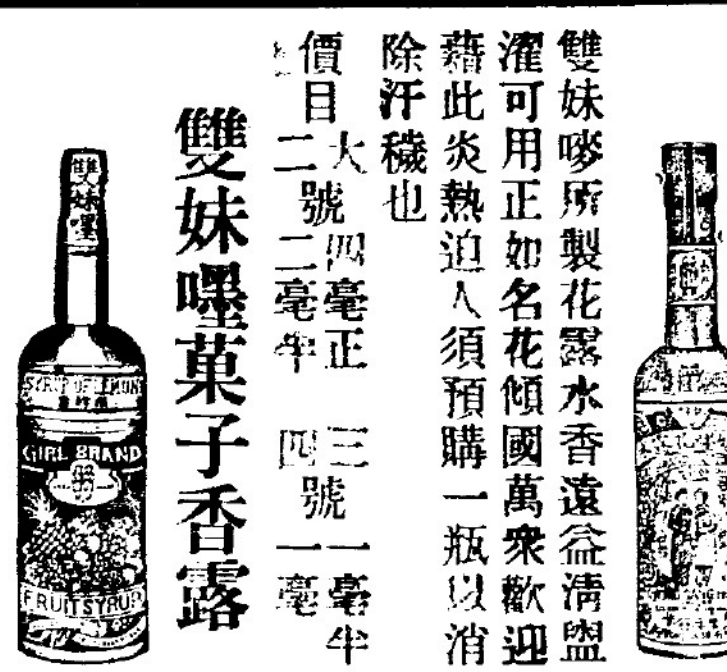 雙妹嘜所製花露水香遠益淸盥
濯可用正如名花傾國萬衆歡迎
藉此炎熱迫人須預購一瓶以消
除汗穢也
價目 大號 四毫正 三號 一毫半
二號 二毫半 四號 一毫
雙妹嚜菓子香露
雙妹嚜
SYRUP OF LEMON
GIRL BRAND
FRUIT SYRUP